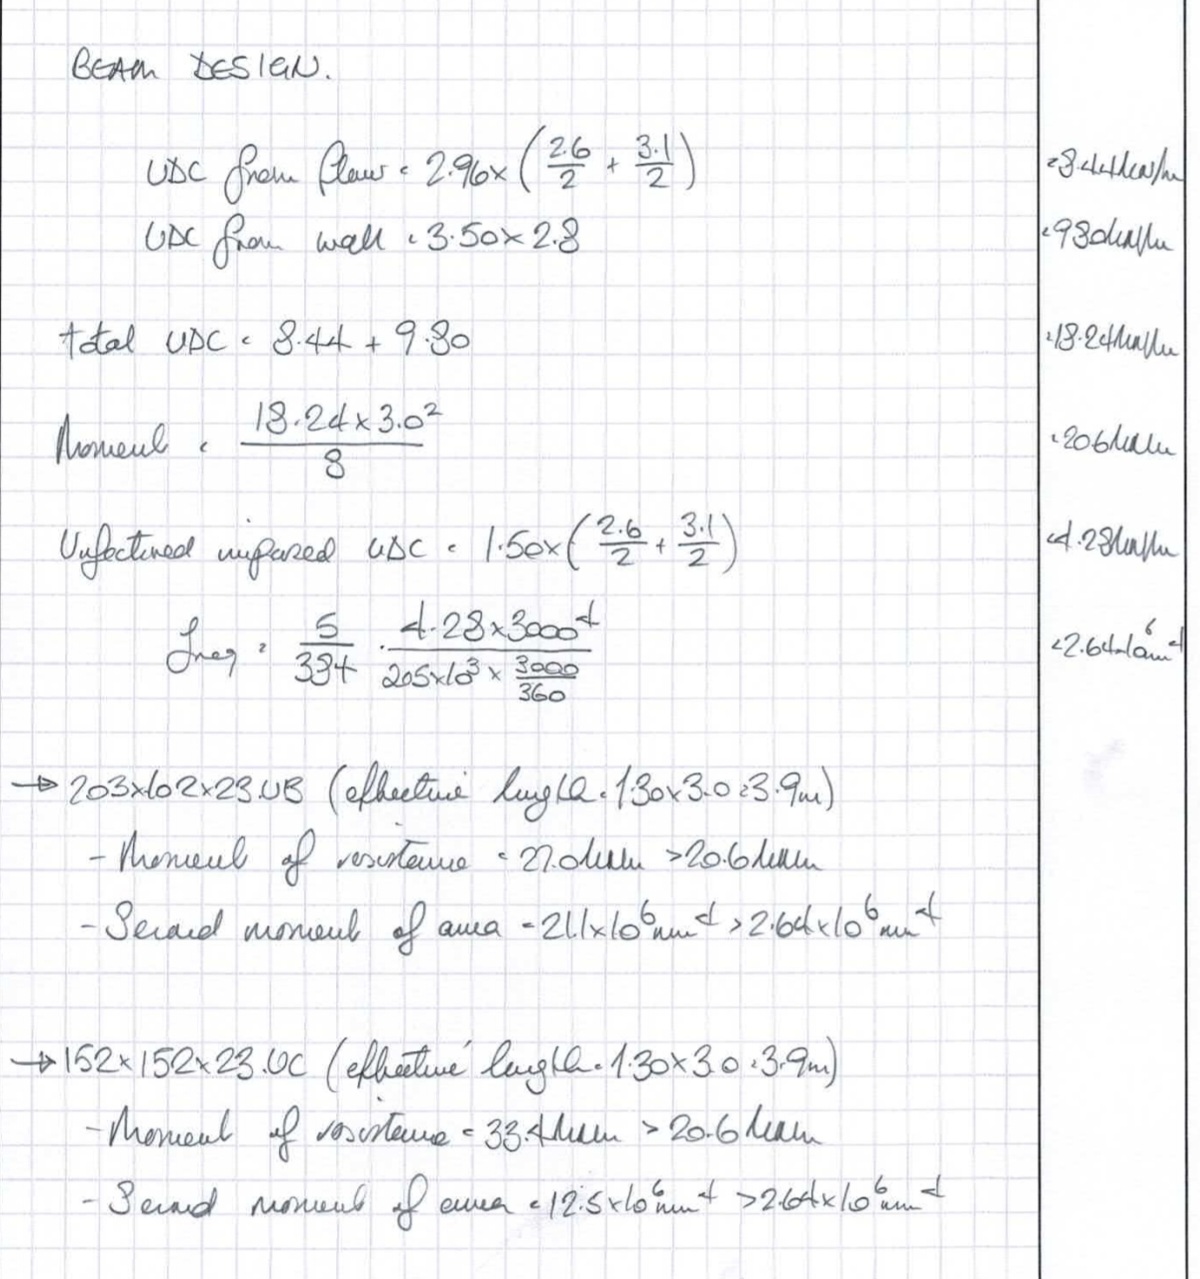 BEAM DESIGN.
UDL from floor = 2.96 × (2.6/2 + 3.1/2) = 8.44kN/m
UDL from wall = 3.50 × 2.8 = 9.80kN/m
total UDL = 8.44 + 9.80 = 18.24kN/m
Moment = 18.24 × 3.0²/8 = 20.6kNm
Unfactored imposed UDL = 1.50 × (2.6/2 + 3.1/2) = 4.28kN/m
Ireq = 5/384 . 4.28 × 3000⁴/(205×10³ × 3000/360) = 2.64×10⁶mm⁴
→ 203×102×23.UB (effective length = 1.30×3.0 = 3.9m)
- Moment of resistance = 27.0kNm > 20.6kNm
- Second moment of area = 21.1×10⁶mm⁴ > 2.64×10⁶mm⁴
→ 152×152×23.UC (effective length = 1.30×3.0 = 3.9m)
- Moment of resistance = 33.4kNm > 20.6kNm
- Second moment of area = 12.5×10⁶mm⁴ > 2.64×10⁶mm⁴